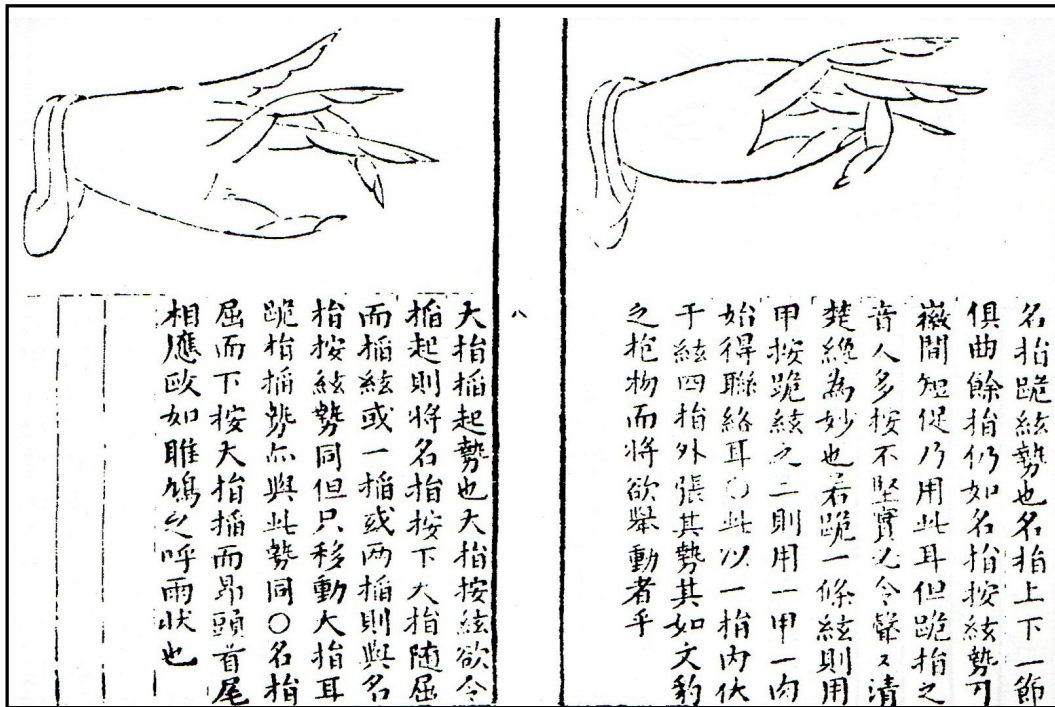 名指跪絃勢也名指上下一節
俱曲餘指仍如名指按絃勢可
徽間短促乃用此耳但跪指之
音人多按不堅實必令聲々清
楚纔為妙也若跪一條絃則用
甲按跪絃之二則用一甲一肉
始得聯絡耳〇此以一指內伏
于絃四指外張其勢其如文豹
之抱物而將欲舉動者乎
八
大指搯起勢也大指按絃欲令
搯起則將名指按下大指隨屈
而搯絃或一搯或两搯則與名
指按絃勢同但只移動大指耳
跪指搯勢亦與此勢同〇名指
屈而下按大指搯而昂頭首尾
相應歐如雎鳩之呼雨狀也